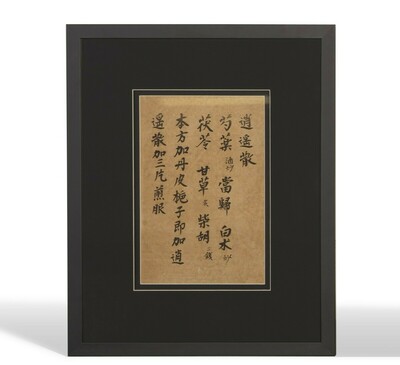 逍遙散
芍藥 酒炒 當歸 白朮 炒
茯苓 甘草 炙 柴胡 二錢
本方加丹皮梔子即加逍
遙散加三片煎服